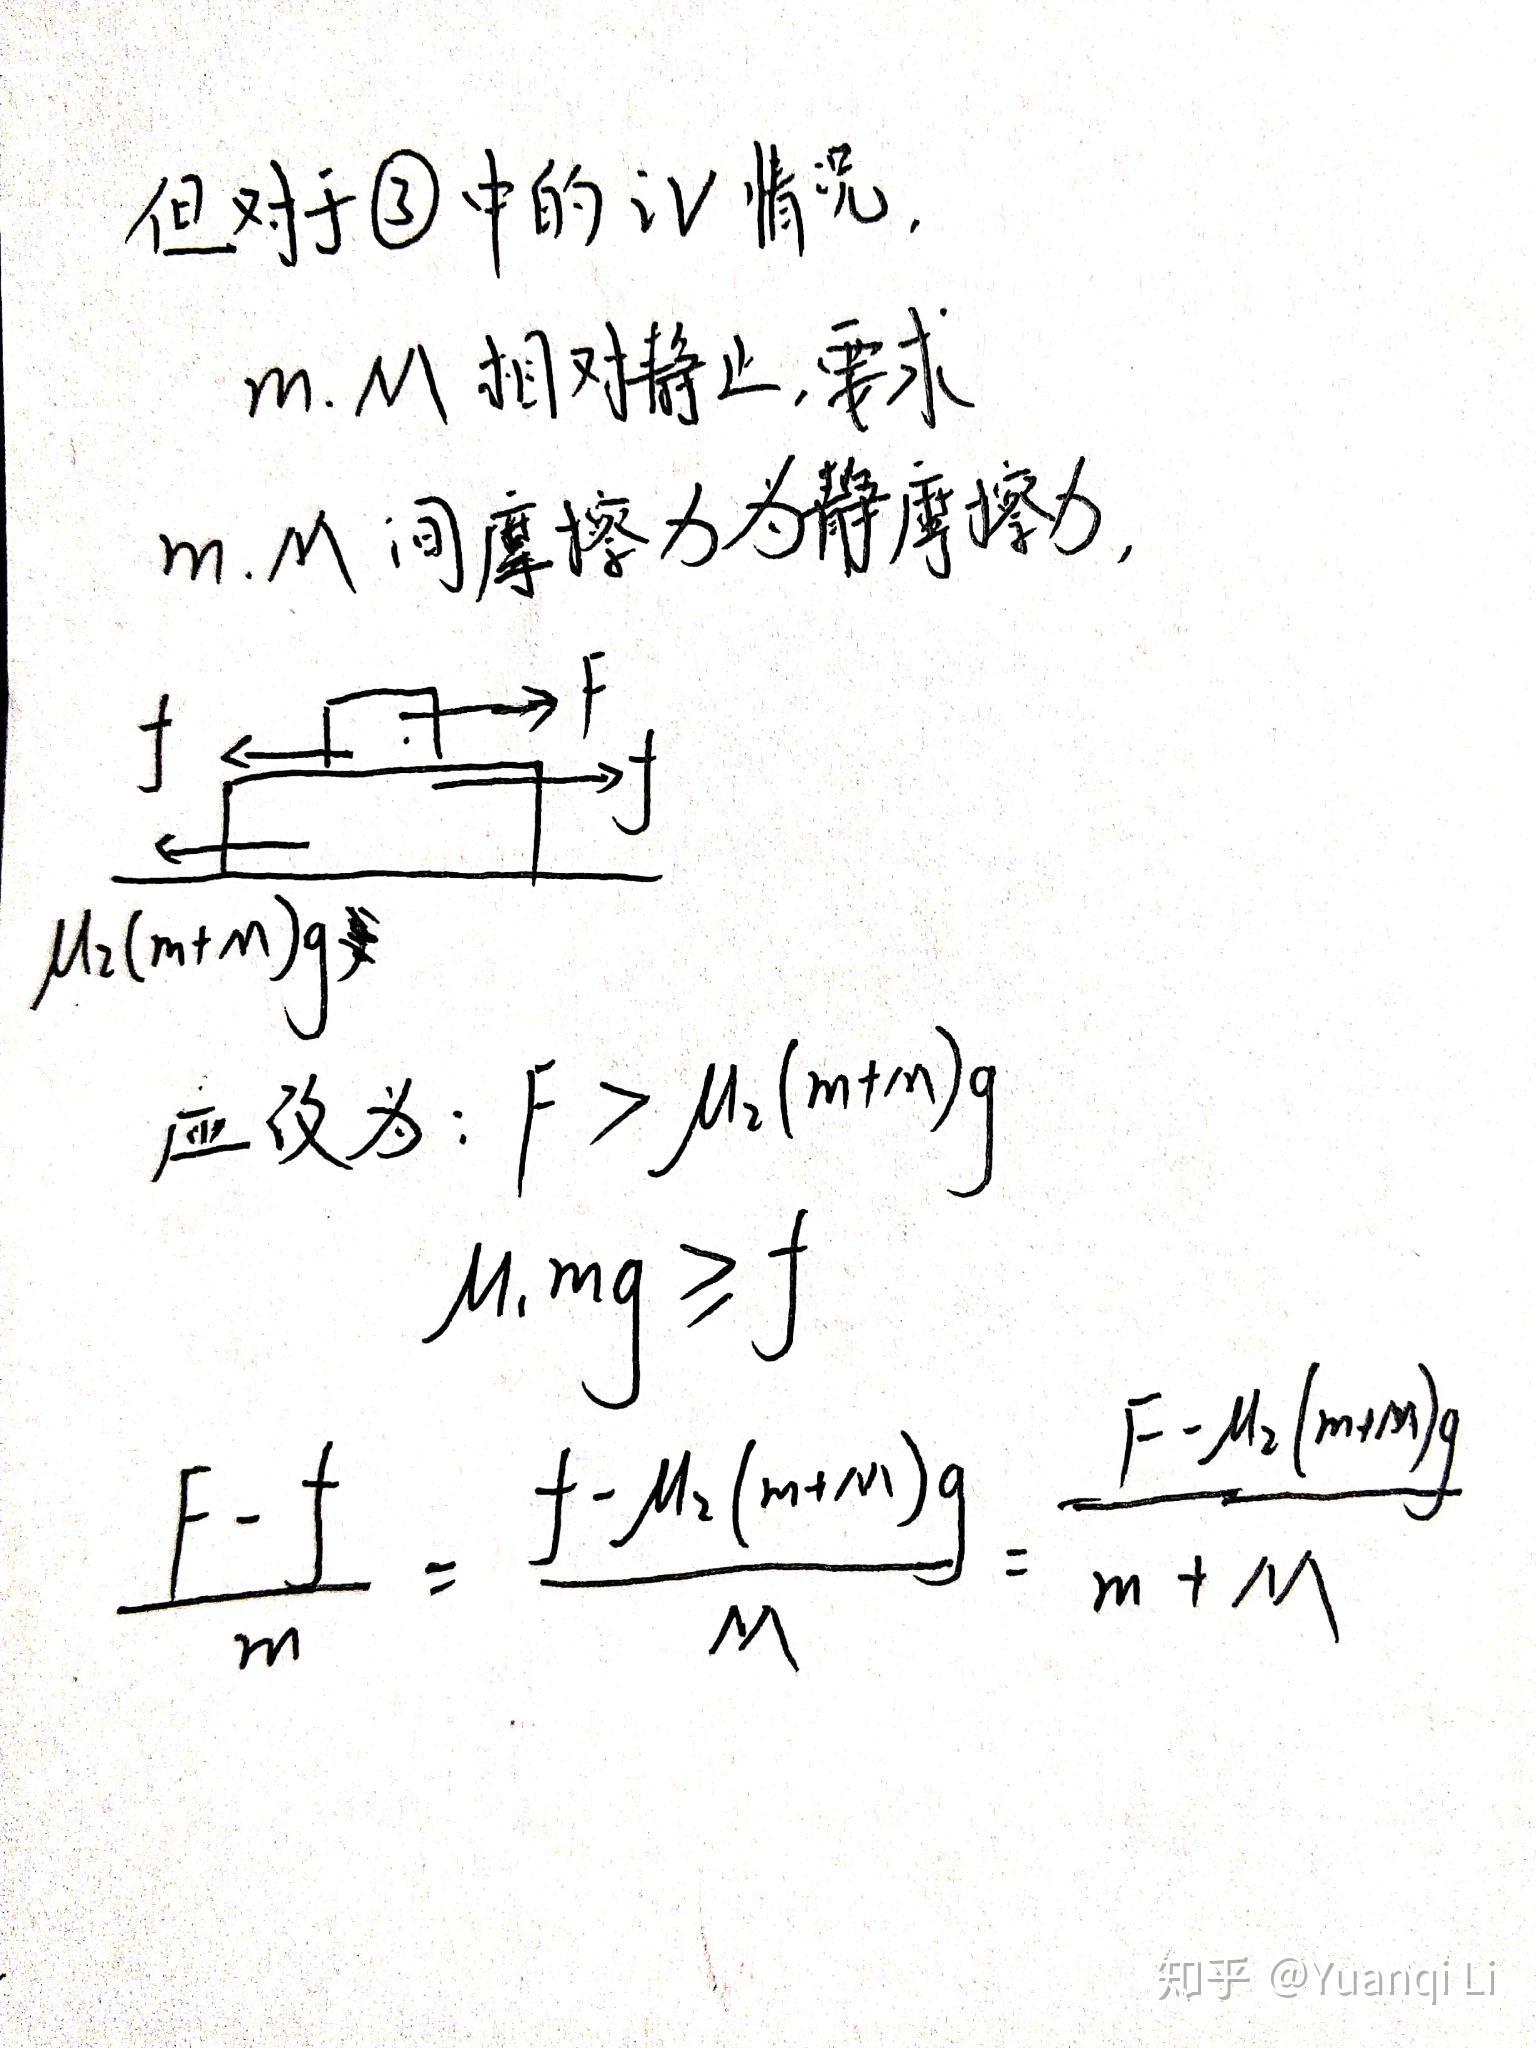 但对于③中的iV情况,
m.M相对静止,要求
m.M间摩擦力为静摩擦力,
F
f
f
μ₂(m+M)g
应改为: F > μ₂(m+M)g
μ₁mg ≥ f
(F-f)/m = (f-μ₂(m+M)g)/M = (F-μ₂(m+M)g)/(m+M)
知乎 @Yuanqi Li